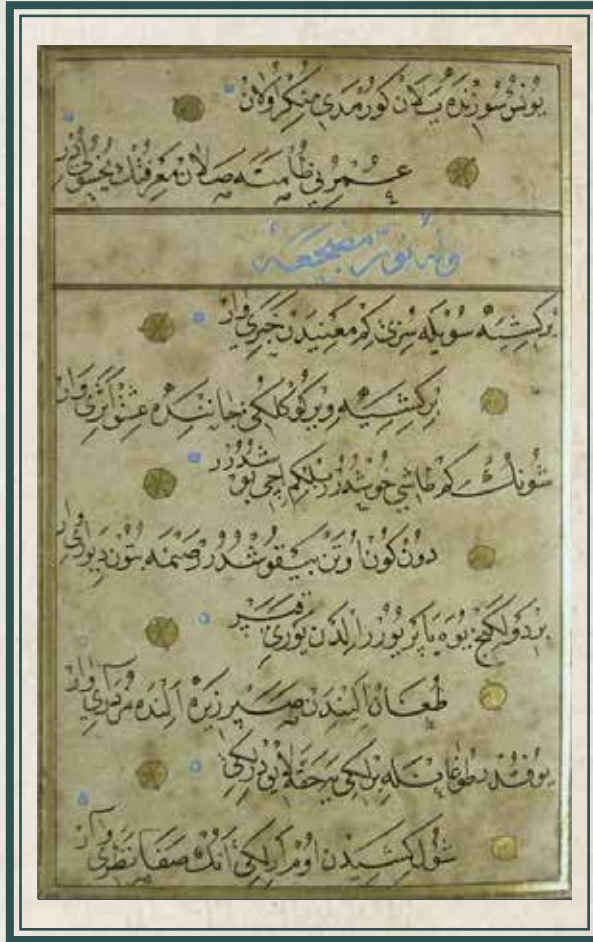 يونس سوزنده يلان كورمدي منكر اولان
عمرني ظلمته صالان معرفتك يخسوليدر
وله نور مضجعه
بر كشيه سويله سزي كم معنيدن خبري وار
بر كشييه وير كوكلكي جاننده عشق اثري وار
شونك كم طاشي خوشدر بلك كم ايچي بوشدر
دون كون اوتن بيقوشدر صنمه بتون ديواري وار
بر دولكج يوه ياپر يورر ايلدن يوري قپر
طغان الندن صپر زيره النده مرداري وار
يوقدر طوغانيله برلكي لايق ديرلكي
شول كشيدن اوم ارلكي انك صفا نظري وار